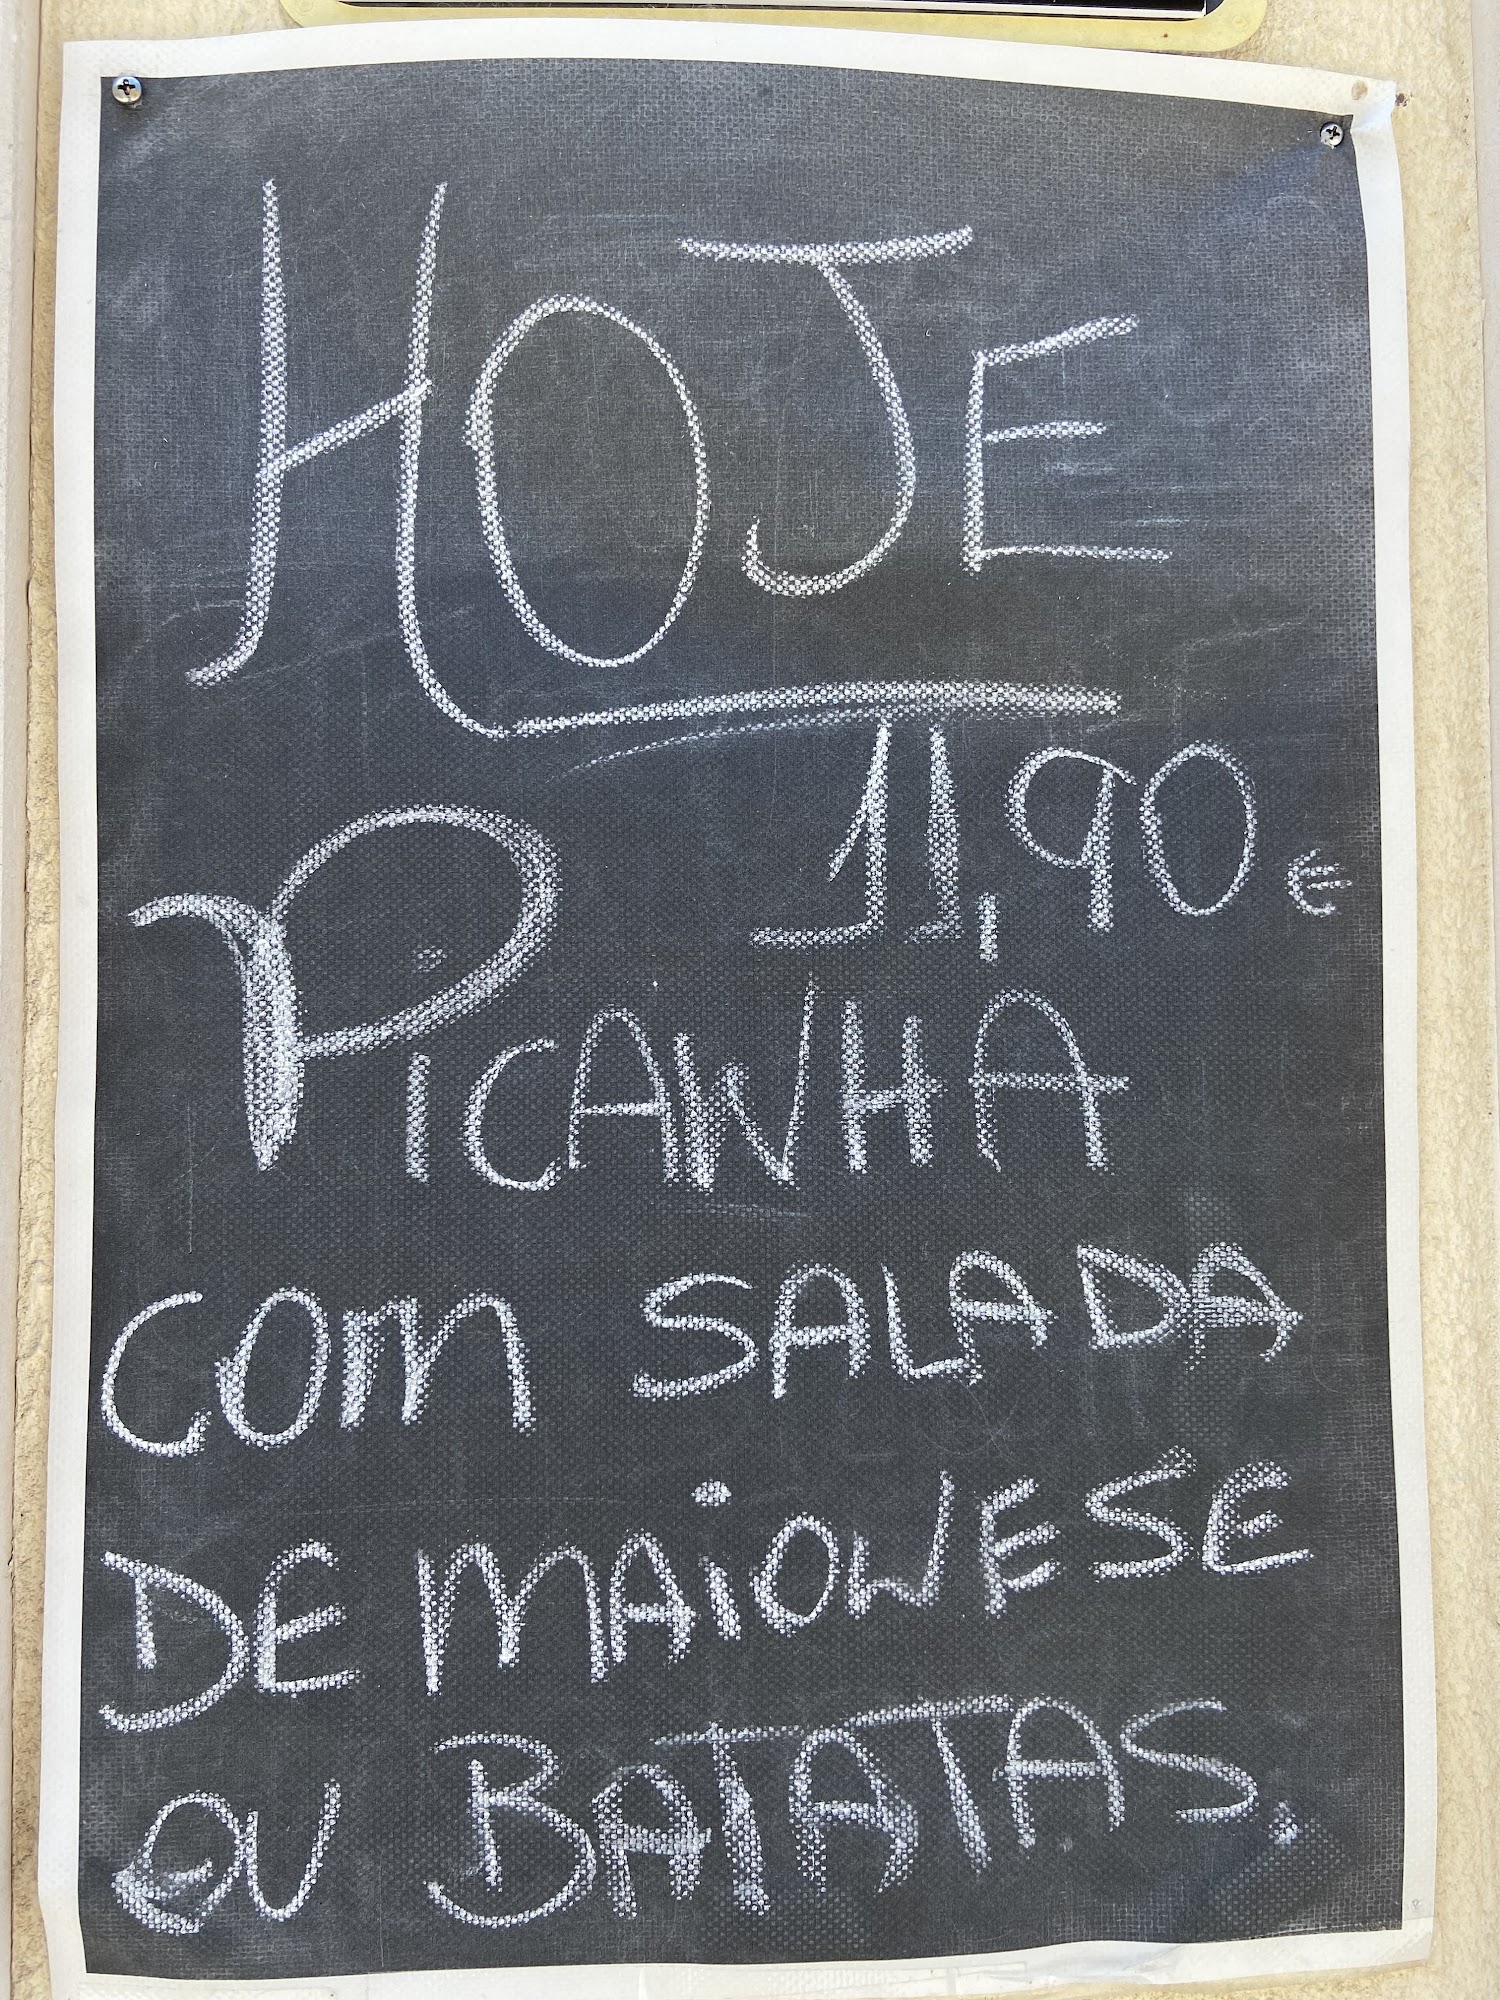 HOJE
11,90 €
PICANHA
COM SALADA
DE MAIONESE
OU BATATAS.